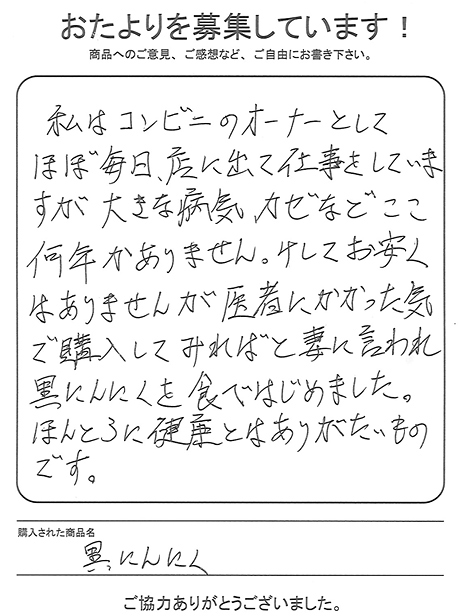 おたよりを募集しています！
商品へのご意見、ご感想など、ご自由にお書き下さい。
私はコンビニのオーナーとして
ほぼ毎日、店に出て仕事をしていま
すが大きな病気、カゼなどここ
何年かありません。けしてお安く
はありませんが医者にかかった気
で購入してみればと妻に言われ
黒にんにくを食べはじめました。
ほんとうに健康とはありがたいもの
です。
購入された商品名
黒にんにく
ご協力ありがとうございました。